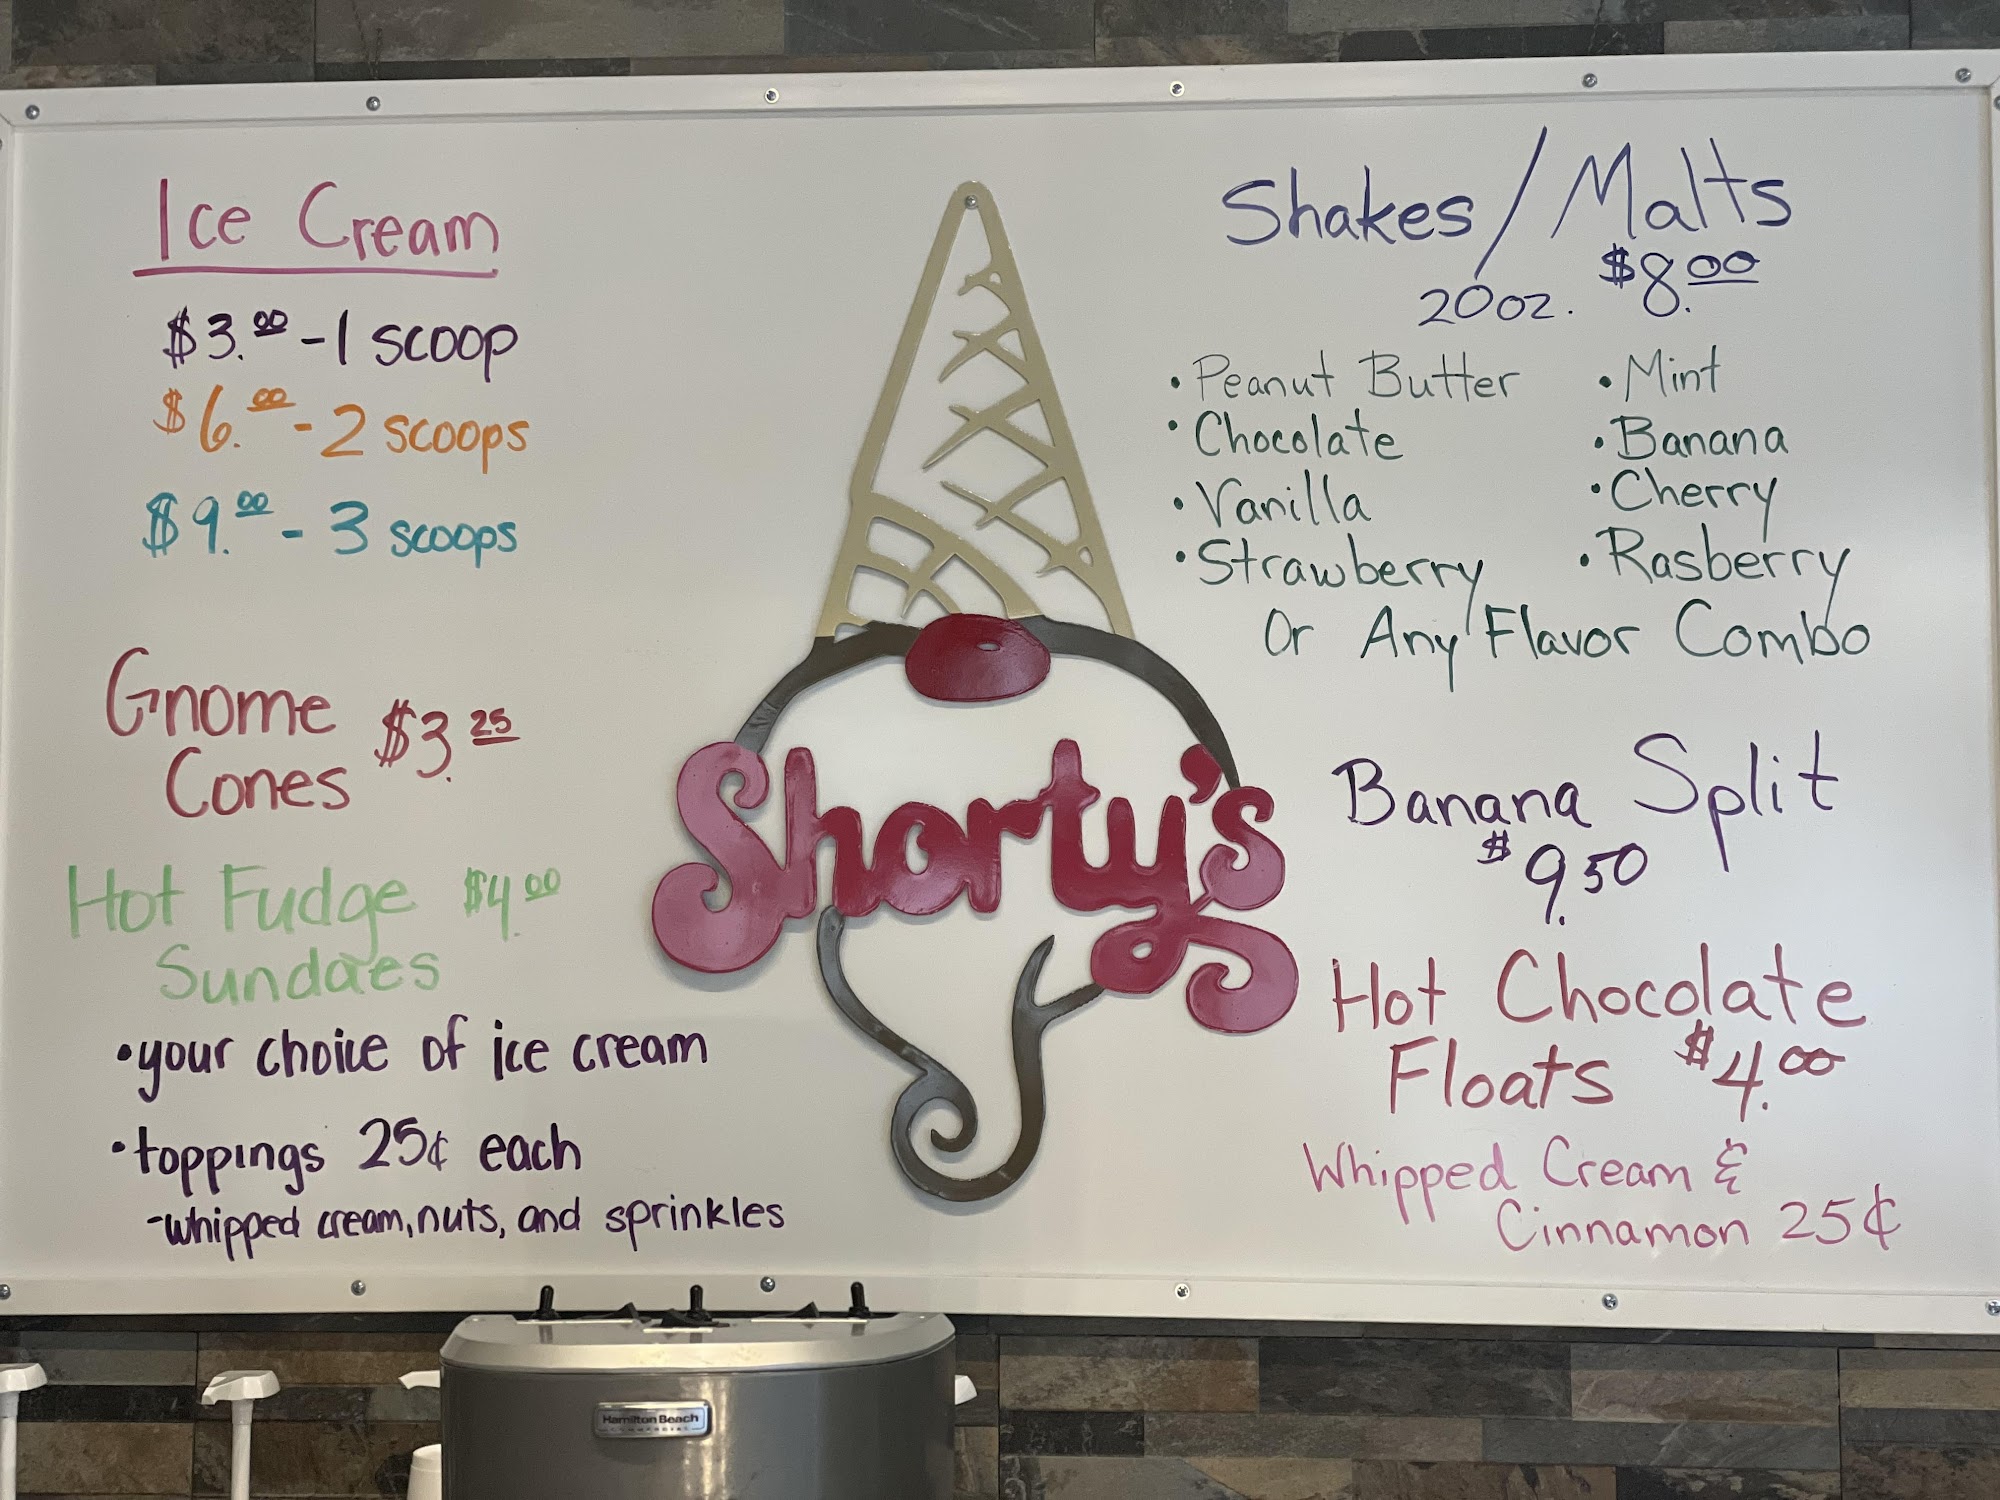 Ice Cream
$3.00 - 1 scoop
$6.00 - 2 scoops
$9.00 - 3 scoops
Gnome
Cones $3.25
Hot Fudge $4.00
Sundaes
• your choice of ice cream
• toppings 25¢ each
- whipped cream, nuts, and sprinkles
Shorty's
Shakes/Malts
20oz. $8.00
• Peanut Butter
• Chocolate
• Vanilla
• Strawberry
• Mint
• Banana
• Cherry
• Rasberry
Or Any Flavor Combo
Banana Split
$9.50
Hot Chocolate
Floats $4.00
Whipped Cream &
Cinnamon 25¢
Hamilton Beach
COMMERCIAL